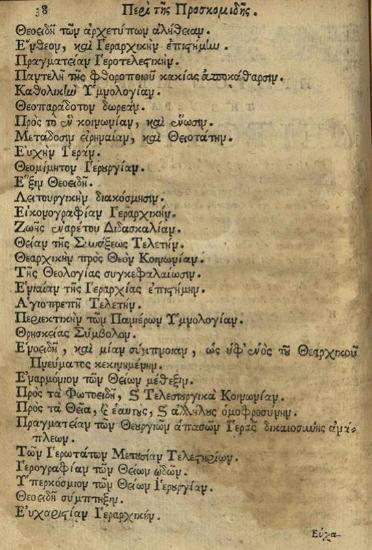 38 Περὶ τῆς Προσκομιδῆς.
Θεοειδῆ τῶν ἀρχετύπων ἀλήθειαν.
Ἔνθεον, καὶ Γεραρχικὴν ἐπιστήμην.
Πραγματείαν Γεροτελεστικήν.
Παντελῆ τῆς φθοροποιοῦ κακίας ἀποκάθαρσιν.
Καθολικὴν Ὑμνολογίαν.
Θεοπαράδοτον δωρεάν.
Πρὸς τὸ ἓν κοινωνίαν, καὶ ἕνωσιν.
Μετάδοσιν εἰρηναίαν, καὶ Θειοτάτην.
Εὐχὴν Γεράν.
Θεομίμητον Γερουργίαν.
Ἕξιν Θεοειδῆ.
Λειτουργικὴν διακόσμησιν.
Εἰκονογραφίαν Γεραρχικήν.
Ζωῆς ἐναρέτου Διδασκαλίαν.
Θείαν τῆς Συνάξεως Τελετήν.
Θεαρχικὴν πρὸς Θεὸν Κοινωνίαν.
Τῆς Θεολογίας συγκεφαλαίωσιν.
Ἑνιαίαν τῆς Γεραρχίας ἐπιστήμην.
Ἁγιοπρεπῆ Τελετήν.
Περιεκτικὴν τῶν Πανιέρων Ὑμνολογίαν.
Θρησκείας Σύμβολον.
Ἑνοειδῆ, καὶ μίαν σύμπνοιαν, ὡς ὑφ' ἑνὸς τοῦ Θεαρχικοῦ
Πνεύματος κεκινημένην.
Ἐναρμόνιον τῶν Θείων μέθεξιν.
Πρὸς τὰ Φωτοειδῆ, ϗ Τελεσιουργικὰ Κοινωνίαν.
Πρὸς τὰ Θεῖα, ϗ ἑαυτὺς, ϗ ἀλλήλυς ὁμοφροσύνην.
Πραγματείαν τῶν Θεουργιῶν ἁπασῶν Γερᾶς δικαιοσύνης ἀνά-
πλεων.
Τῶν Γερωτάτων Μετουσίαν Τελεστηρίων.
Γερογραφίαν τῶν Θείων ὠδῶν.
Ὑπερκόσμιον τῶν Θείων Γερυργίαν.
Θεοειδῆ σύμπτηξιν.
Εὐχαριστίαν Γεραρχικήν.
Εὐχα-